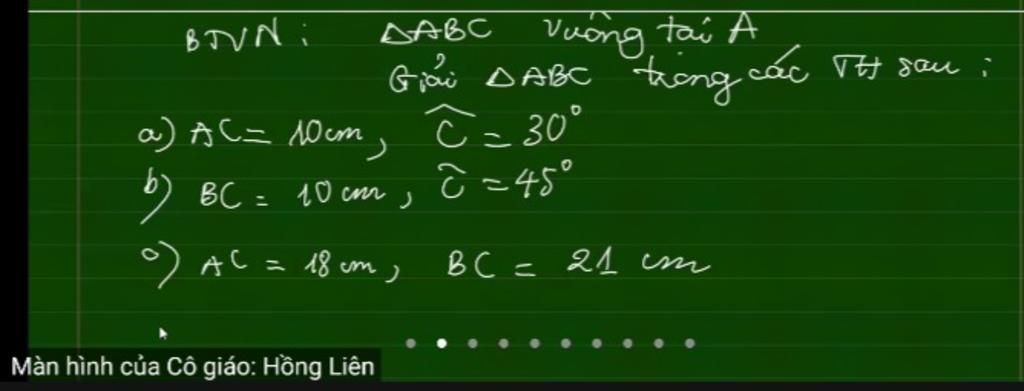 BTVN : ΔABC vuông tại A
Giải ΔABC trong các TH sau :
a) AC = 10cm, Ĉ = 30°
b) BC = 10 cm, Ĉ = 45°
c) AC = 18 cm, BC = 21 cm
Màn hình của Cô giáo: Hồng Liên